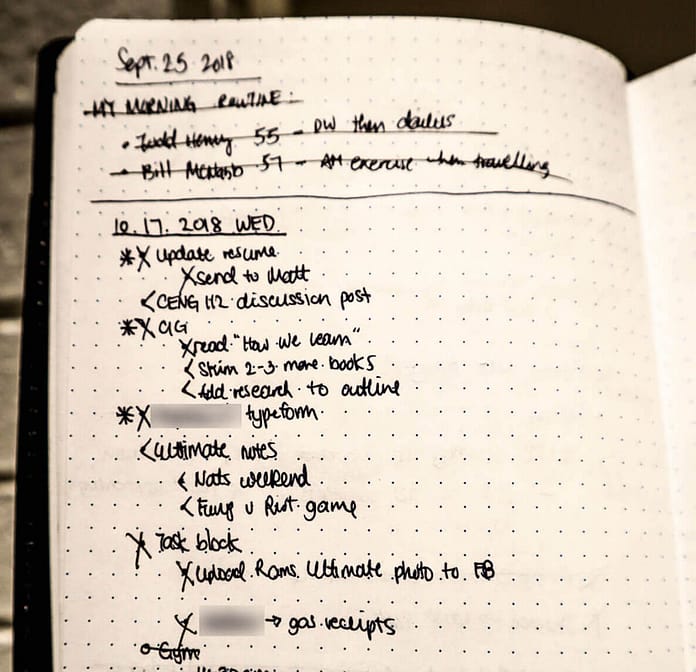 Sept. 25 2018
MY MORNING ROUTINE:
• Todd Henry 55 - DW then dailies
- Bill McNabb 57 - AM exercise when travelling
10.17.2018 WED.
*X update resume
X send to Matt
< CENG 112 discussion post
*X CIG
X read "How We Learn"
< Skim 2-3 more books
< Add research to outline
*X typeform
< Ultimate notes
< Nats weekend
< Fury v Riot game
X Task block
X Upload Rams Ultimate photo to FB
X → gas receipts
o Gym